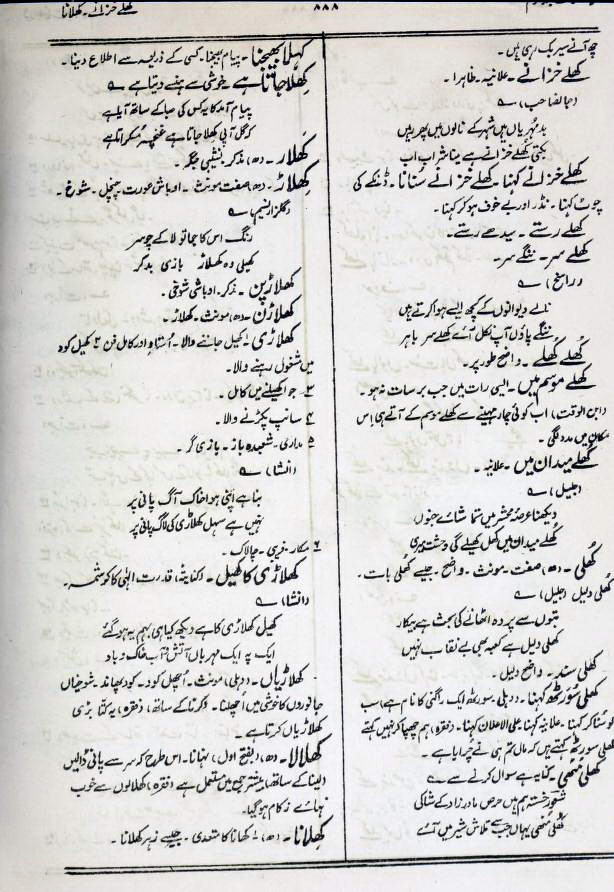 کھلے خزانے۔ کھلانا
۸۸۸
چھ آنے سیر بک رہی ہیں۔
کھلے خزانے۔ علانیہ۔ ظاہرا۔
(جانصاحب) ؎
بدمُہریاں ہیں شہر کے نالوں میں پھر رہیں
بکتی کُھلے خزانے ہے مینا شراب اب
کھلے خزانے کہنا۔ کھلے خزانے سُنانا۔ ڈنکے کی
چوٹ کہنا۔ نڈر اور بے خوف ہو کر کہنا۔
کھلے رستے۔ سیدھے رستے۔
کھلے سر۔ ننگے سر۔
(راسخ) ؎
نالے دیوانوں کے کچھ ایسے ہوا کرتے ہیں
ننگے پاؤں آپ نکل آئے کھلے سر باہر
کُھلے کُھلے۔ واضح طور پر۔
کھلے موسم میں۔ ایسی رات میں جب برسات نہ ہو۔
(ابن الوقت) اب کوئی چار مہینے سے کھلے موسم کے آتے ہی اِس
مکان میں مدد لگی۔
کُھلے میدان میں۔ علانیہ۔
(جلیل) ؎
دیکھنا عرصۂ محشر میں تماشائے جنوں
کُھلے میدان میں کھل کھیلے گی وحشت میری
کُھلی۔ (ھ) صفت۔ مونث۔ واضح۔ جیسے کُھلی بات۔
کُھلی دلیل (جلیل) ؎
بتوں سے پردہ اٹھانے کی بحث ہے بیکار
کھلی دلیل ہے کعبہ بھی بے نقاب نہیں
کھلی سند۔ واضح دلیل۔
کھلی سورٹھ کہنا۔ (دہلی۔ سورٹھ ایک راگنی کا نام ہے) سب
کو سُنا کر کہنا۔ علانیہ کہنا۔ علی الاعلان کہنا۔ (فقرہ) ہم چھپا کر نہیں کہتے
کھلی سورٹھ کہتے ہیں کہ مال تم ہی نے چرایا ہے۔
کُھلی مُٹھی۔ کنایہ ہے سوال کرنے سے ؎
شعورؔ خستہ ہم ہیں حرص مادرزاد کے شاکی
کُھلی مُٹھی یہاں جب سے تلاش شیر میں آئے
کہلا بھیجنا۔ پیام بھیجنا۔ کسی کے ذریعہ سے اطلاع دینا۔
کِھلا جاتا ہے۔ خوشی سے ہنسے دیتا ہے ؎
پیام آمد کا یہ کس کی صبا کے ساتھ آیا ہے
کہ گل آپی کھلا جاتا ہے غنچہ مسکراتا ہے
کھلار۔ (ھ) مذکر۔ نشیبی جگہ۔
کِھلاڑ۔ (ھ) صفت مونث۔ اوباش عورت۔ چنچل۔ شوخ۔
(گلزار نسیم) ؎
رنگ اس کا جما تو لا کے چوسر
کھیلی وہ کھلاڑ بازی بد کر
کھلاڑپن۔ مذکر۔ اوباشی شوخی۔
کھلاڑن۔ (ھ) مونث۔ کھلاڑ۔
کھلاڑی۔ کھیل جاننے والا۔ اُستاد اور کامل فن ۲ کھیل کود
میں مشغول رہنے والا۔
۳ جوا کھیلنے میں کامل۔
۴ سانپ پکڑنے والا۔
۵ مداری۔ شعبدہ باز۔ بازی گر۔
(انشا) ؎
بنا ہے اپنی ہوا خاک آگ پانی پر
نہیں ہے سہل کھلاڑی کی لاگ پانی پر
۶ مکار۔ فریبی۔ چالاک۔
کھلاڑی کا کھیل۔ (کنایۃً) قدرت الٰہی کا کرشمہ۔
(انشا) ؎
کھیل کھلاڑی کا ہے دیکھ کیا ہی بہم یہ ہو گئے
ایک پہ ایک مہرباں آتش و آب خاک و باد
کھلاڑیاں۔ (دہلی) مونث۔ اُچھل کود۔ کود پھاند۔ شوخیاں
جانوروں کا خوشی میں اُچھلنا۔ (کرنا کے ساتھ) (فقرہ) یہ کتا بڑی
کھلاڑیاں کرتا ہے۔
کھلالا۔ (ھ) (بفتح اول) نہانا۔ اس طرح کہ سر سے پانی ڈالیں
(لینا کے ساتھ) بیشتر جمع میں مستعمل ہے (فقرہ) کھلالوں سے خوب
نہائے زکام ہو گیا۔
کِھلانا۔ (ھ) ۱ کھانا کا متعدی۔ جیسے زہر کھلانا۔